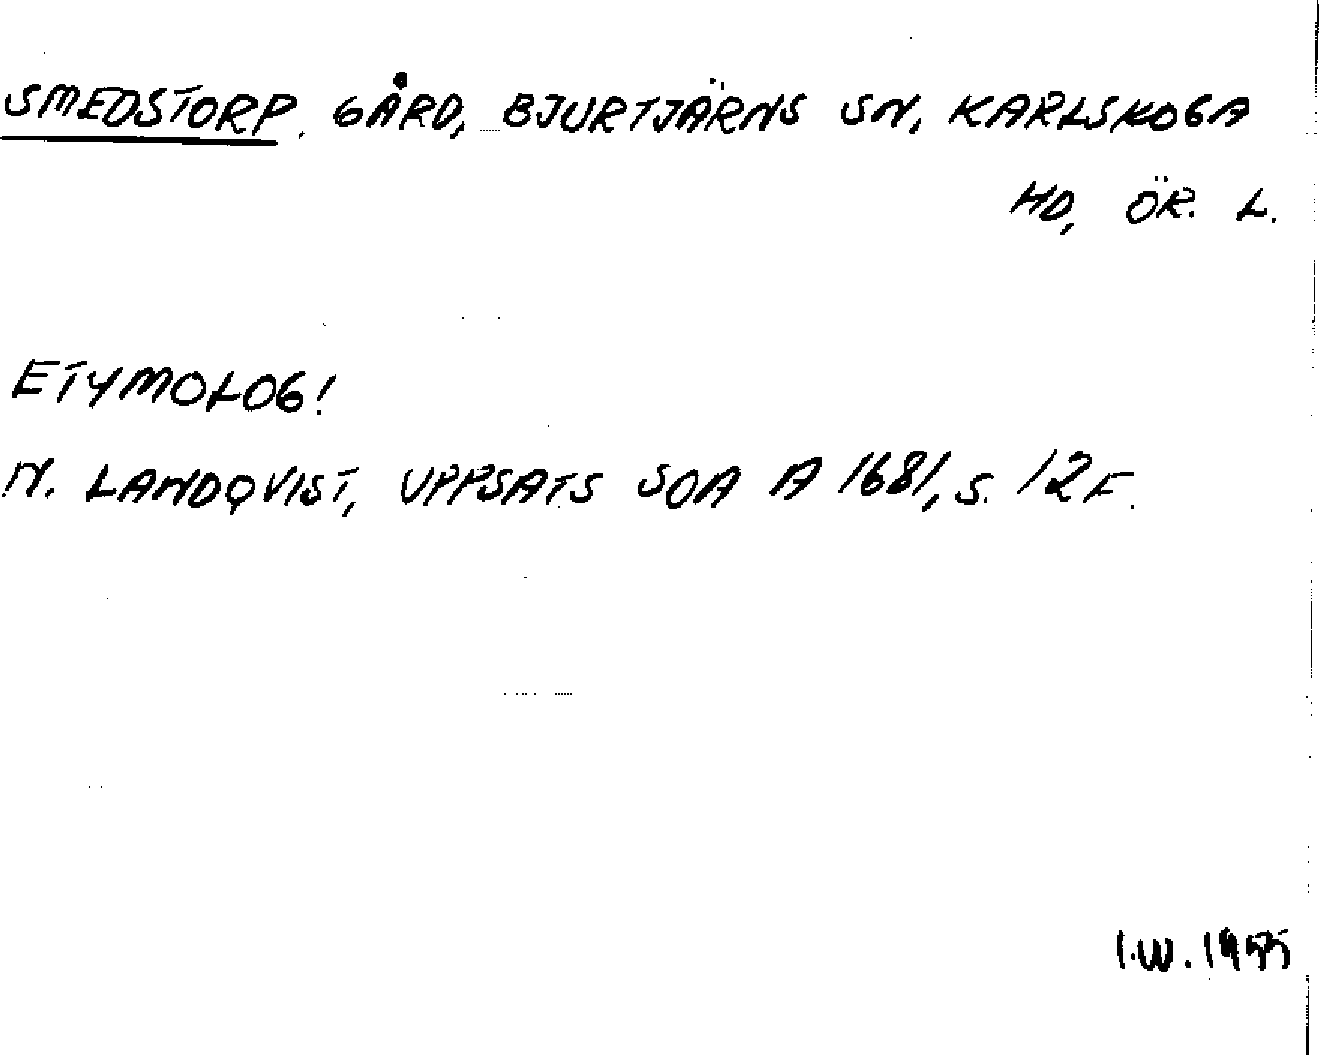 SMEDSTORP. GÅRD, BJURTJÄRNS SN, KARLSKOGA
HD, ÖR. L.
ETYMOLOG!
N. LANDQVIST, UPPSATS SOA A 1681, S. 12 F.
I.W.